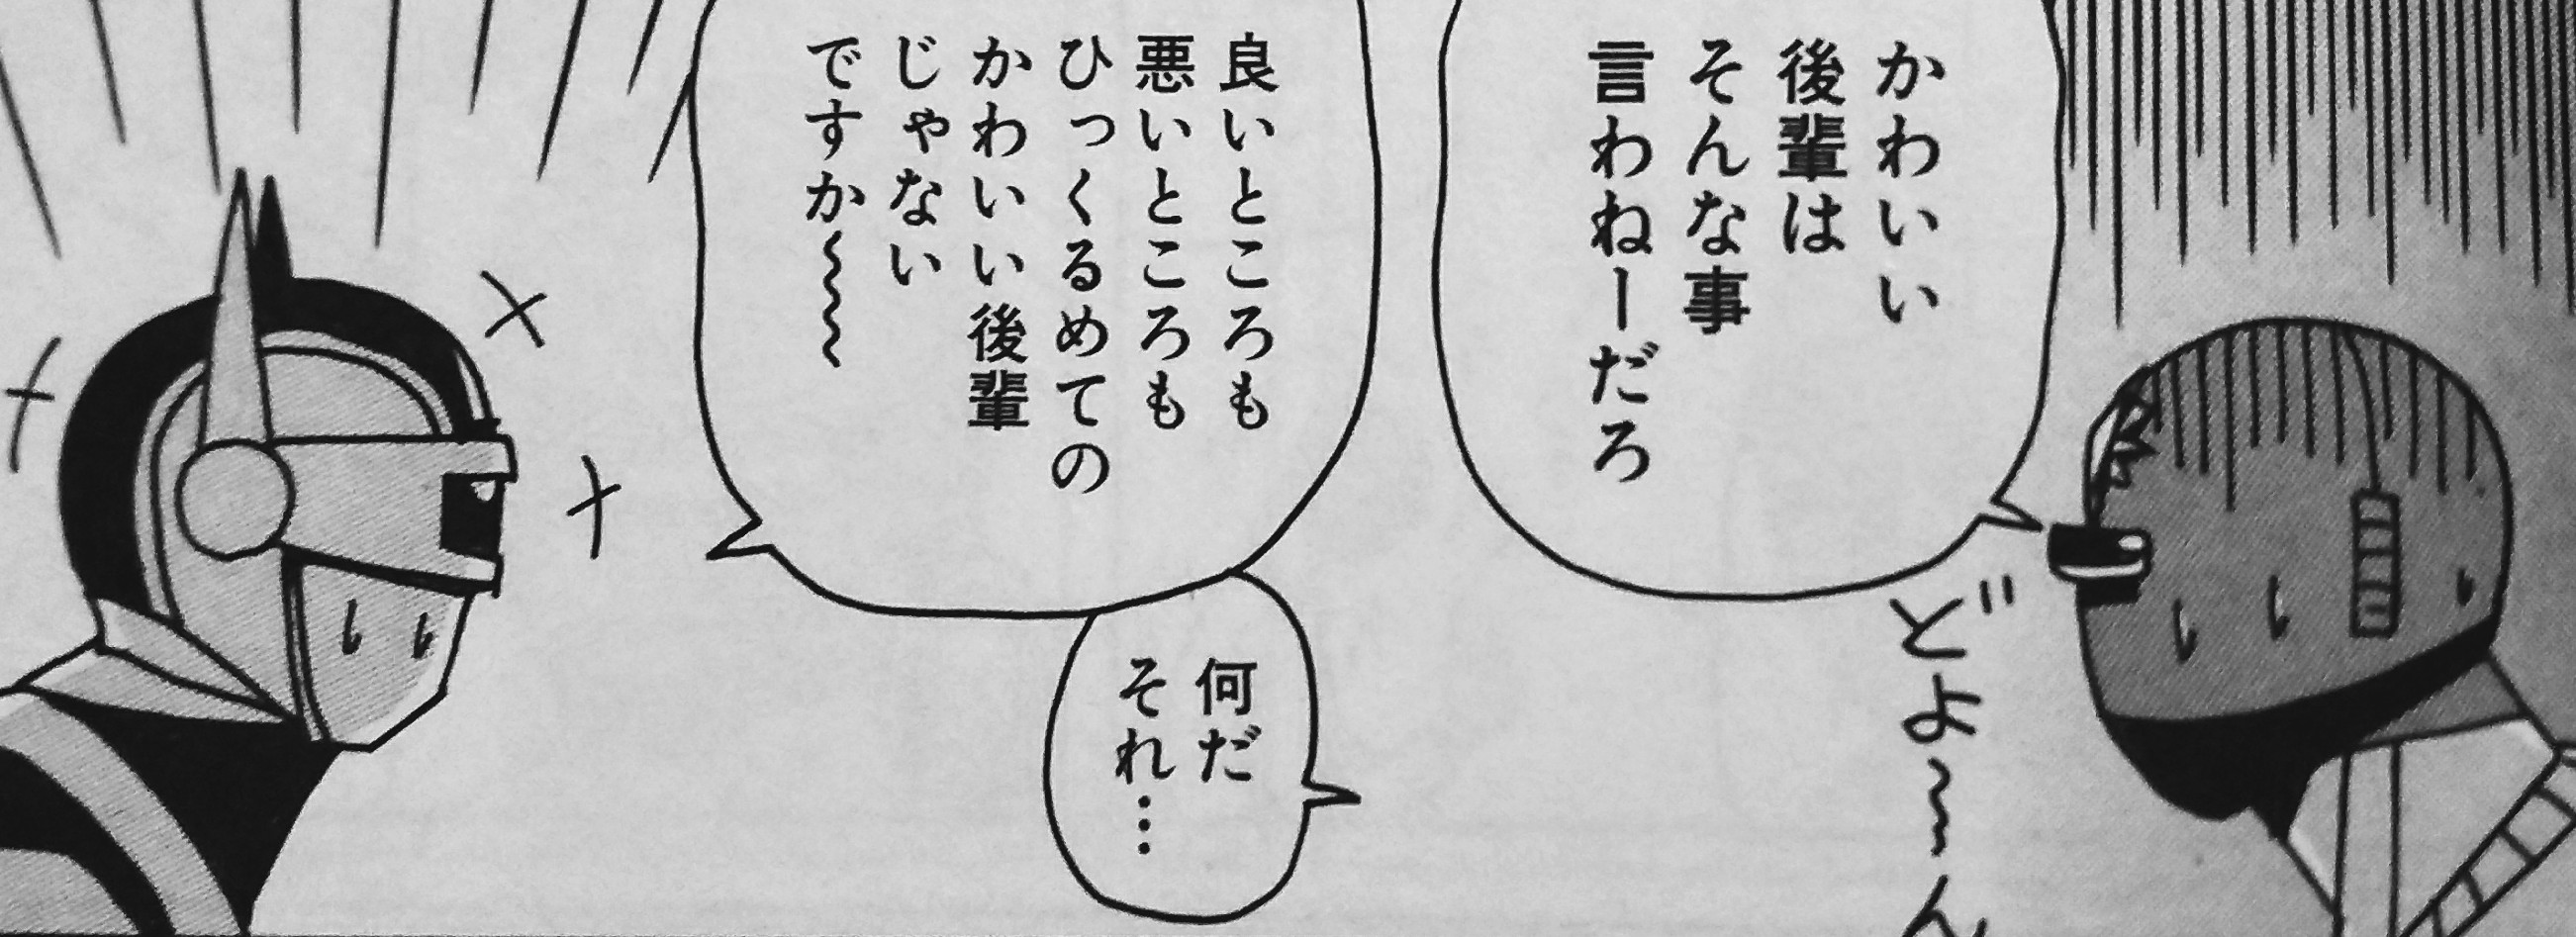 かわいい
後輩は
そんな事
言わねーだろ
良いところも
悪いところも
ひっくるめての
かわいい後輩
じゃない
ですか〜〜〜
何だ
それ…
どよ〜ん